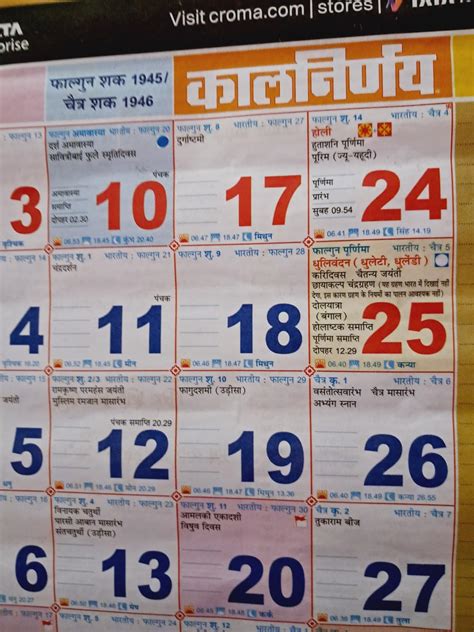 TATA
Visit croma.com | stores |
rise
फाल्गुन शक 1945/
चैत्र शक 1946
कालनिर्णय
फाल्गुन 13
3
वृश्चिक
फाल्गुन अमावास्या भारतीय : फाल्गुन 20
दर्श अमावास्या
सावित्रीबाई फुले स्मृतिदिवस
पंचक
अमावास्या
समाप्ति
दोपहर 02.30
10
06.53 18.45 कुंभ 20.40
फाल्गुन शु. 8 भारतीय : फाल्गुन 27
दुर्गाष्टमी
17
06.47 18.47 मिथुन
फाल्गुन शु. 14 भारतीय : चैत्र 4
होली
हुताशनि पूर्णिमा
पूरिम (ज्यू-यहूदी)
पूर्णिमा
प्रारंभ
सुबह 09.54
24
06.41 18.49 सिंह 14.19
4
फाल्गुन शु. 1 भारतीय : फाल्गुन 21
चंद्रदर्शन
पंचक
11
06.52 18.45 मीन
फाल्गुन शु. 9 भारतीय : फाल्गुन 28
18
06.46 18.47 मिथुन
फाल्गुन पूर्णिमा भारतीय : चैत्र 5
धुलिवंदन (धुलेटी, धुलेंडी)
करिदिवस चैतन्य जयंती
छायाकल्प चंद्रग्रहण (यह ग्रहण भारत में दिखाई नहीं
देगा, इस कारण ग्रहण के नियमों का पालन आवश्यक नहीं)
दोलयात्रा
(बंगाल)
होलाष्टक समाप्ति
पूर्णिमा समाप्ति
दोपहर 12.29
25
06.40 18.49 कन्या
14
जयंती
5
फाल्गुन शु. 2/3 भारतीय : फाल्गुन 22
रामकृष्ण परमहंस जयंती
मुस्लिम रमजान मासारंभ
पंचक समाप्ति 20.29
12
06.51 18.46 मीन 20.29
फाल्गुन शु. 10 भारतीय : फाल्गुन 29
फागुदशमी (उड़ीसा)
19
06.46 18.47 मिथुन 13.36
चैत्र कृ. 1 भारतीय : चैत्र 6
वसंतोत्सवारंभ चैत्र मासारंभ
अभ्यंग स्नान
26
18.49 कन्या 26.55
15
6
धनु 20.27
फाल्गुन शु. 4 भारतीय : फाल्गुन 23
विनायक चतुर्थी
पारसी आबान मासारंभ
संतचतुर्थी (उड़ीसा)
13
18.46 मेष
फाल्गुन शु. 11 भारतीय : फाल्गुन 30
आमलकी एकादशी
विषुव दिवस
20
18.48 कर्क
चैत्र कृ. 2 भारतीय : चैत्र 7
तुकाराम बीज
27
18.49 तुला
फाल्गुन 17
फाल्गुन शु. 5